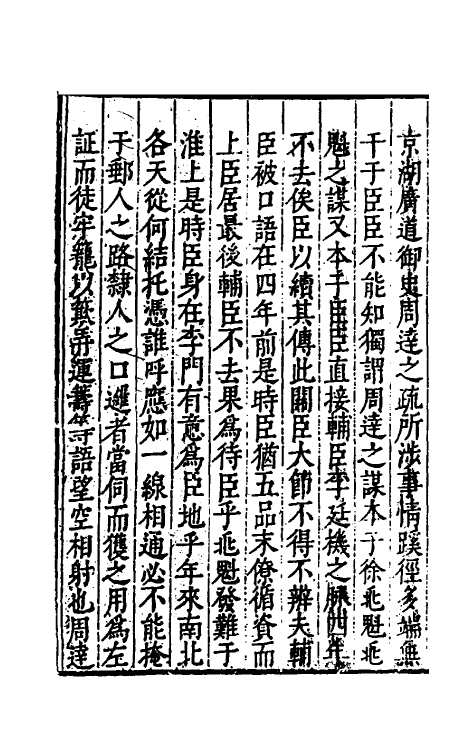 京湖廣道御史周達之疏所涉事情蹊徑多端無
干于臣臣不能知獨謂周達之謀本于徐兆魁兆
魁之謀又本于臣臣直接輔臣李廷機之脉四年
不去俟臣以續其傳此關臣大節不得不辨夫輔
臣被口語在四年前是時臣猶五品末僚循資而
上臣居最後輔臣不去果爲待臣乎兆魁發難于
淮上是時臣身在李門有意爲臣地乎年來南北
各天從何結托憑誰呼應如一線相通必不能掩
于郵人之路隸人之口邏者當伺而獲之用爲左
証而徒牢籠以簸弄運籌等語望空相射也周達